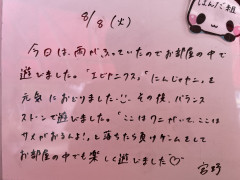 ぱんだ組
8/8(火)
今日は、雨がふっていたのでお部屋の中で
遊びました。「エビカニクス」「にんじゃりん」を
元気におどりました。その後、バランス
ストーンで遊びました。「ここはワニがいて、ここは
サメがおるんよ!」と落ちたら負けゲームをして
お部屋の中でも楽しく遊びました♡
宮野